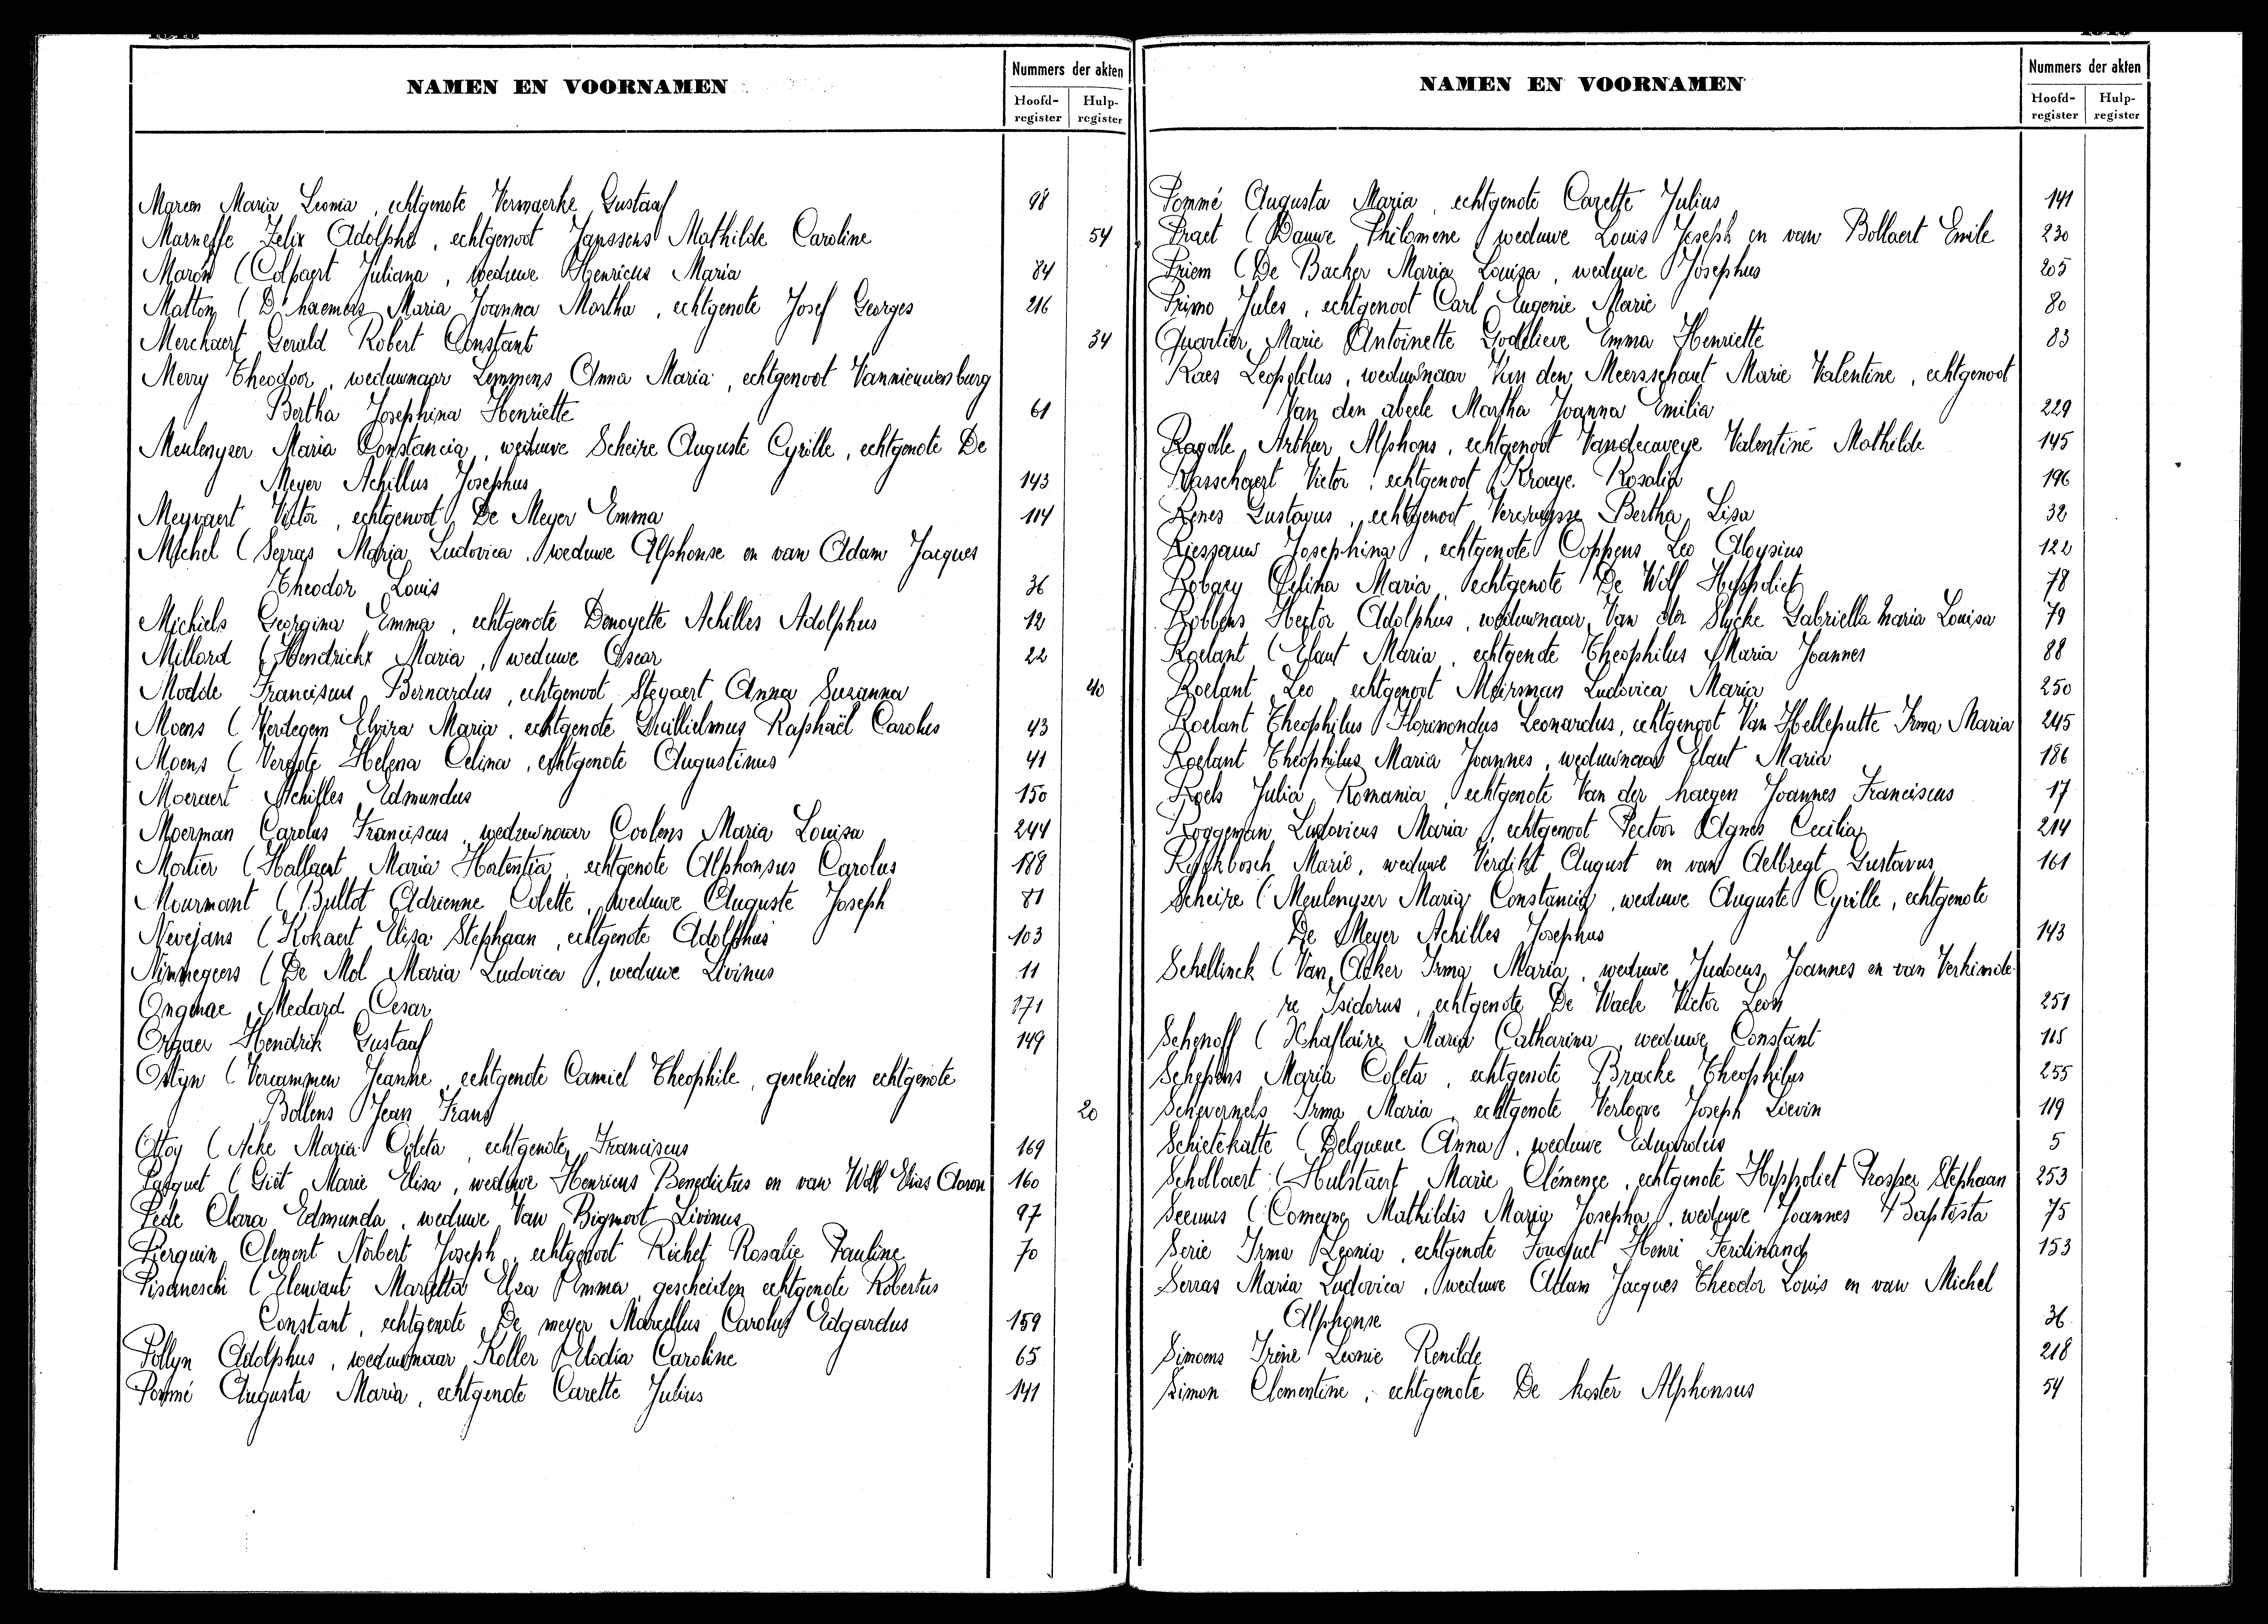 NAMEN EN VOORNAMEN
Nummers der akten
Hoofd-register
Hulp-register
Mareen Maria Leonia, echtgenote Vermaerke Gustaaf 98
Marneffe Felix Adolphe, echtgenoot Janssens Mathilde Caroline 54
Maron (Colpaert Juliana, weduwe Henricus Maria 84
Matton (D'haemers Maria Joanna Martha, echtgenote Josef Georges 216
Merchaert Gerald Robert Constant 34
Merry Theodoor, weduwnaar Lemmens Anna Maria, echtgenoot Vannieuwenburg
Bertha Josephina Henriette 61
Meulenyzer Maria Constancia, weduwe Scheire Auguste Cyrille, echtgenote De
Meyer Achillus Josephus 143
Meyvaert Victor, echtgenoot De Meyer Emma 114
Michel (Serras Maria Ludovica, weduwe Alphonse en van Adam Jacques
Theodor Louis 36
Michiels Georgina Emma, echtgenote Denoyette Achilles Adolphus 12
Millord (Hendrickx Maria, weduwe Oscar 22
Modde Franciscus Bernardus, echtgenoot Steyaert Anna Suzanna 40
Moens (Verdegem Elvira Maria, echtgenote Guillielmus Raphaël Carolus 43
Moens (Vergote Helena Celina, echtgenote Augustinus 41
Moeraert Achilles Edmundus 150
Moerman Carolus Franciscus, weduwnaar Coolens Maria Louisa 244
Mortier (Hallaert Maria Hortentia, echtgenote Alphonsus Carolus 188
Mourmant (Bultot Adrienne Colette, weduwe Auguste Joseph 81
Nevejans (Kokaert Elisa Stephaan, echtgenote Adolphus 103
Nimmegeers (De Mol Maria Ludovica, weduwe Livinus 11
Ongenae Medard Cesar 171
Orgaer Hendrik Gustaaf 149
Ostyn (Vercammen Jeanne, echtgenote Camiel Theophile, gescheiden echtgenote
Bollens Jean Frans 20
Ottoy (Acke Maria Coleta, echtgenote Franciscus 169
Paquet (Giet Marie Elisa, weduwe Henricus Benedictus en van Wolf Elias Aaron 160
Pede Clara Edmunda, weduwe Van Bigwoot Livinus 97
Pierquin Clement Norbert Joseph, echtgenoot Richet Rosalie Pauline 70
Pisaneschi (Elewaut Marietta Elsa Emma, gescheiden echtgenote Robertus
Constant, echtgenote De meyer Marcellus Carolus Edgardus 159
Pollyn Adolphus, weduwnaar Koller Elodia Caroline 65
Pommé Augusta Maria, echtgenote Carette Julius 141
NAMEN EN VOORNAMEN
Nummers der akten
Hoofd-register
Hulp-register
Pommé Augusta Maria, echtgenote Carette Julius 141
Praet (Dauwe Philomene, weduwe Louis Joseph en van Bollaert Emile 230
Priem (De Backer Maria Louiza, weduwe Josephus 205
Primo Jules, echtgenoot Carl Eugenie Marie 80
Quartier Marie Antoinette Godelieve Emma Henriette 83
Raes Leopoldus, weduwnaar Van den Meersschaut Marie Valentine, echtgenoot
Van den abeele Martha Joanna Emilia 229
Ragolle Arthur Alphons, echtgenoot Vandecaveye Valentine Mathilde 145
Rasschaert Victor, echtgenoot Kroeye Rosalia 196
Renes Gustavus, echtgenoot Vercruysse Bertha Lisa 32
Riessauw Josephina, echtgenote Coppens Leo Aloysius 122
Robaey Celina Maria, echtgenote De Wolf Hyppoliet 78
Robbens Hector Adolphus, weduwnaar Van der Slycke Gabriella Maria Louisa 79
Roelant (Elaut Maria, echtgenote Theophilus Maria Joannes 88
Roelant Leo, echtgenoot Meirsman Ludovica Maria 250
Roelant Theophilus Florimondus Leonardus, echtgenoot Van Helleputte Irma Maria 245
Roelant Theophilus Maria Joannes, weduwnaar Elaut Maria 186
Roels Julia Romania, echtgenote Van der haegen Joannes Franciscus 17
Roggeman Ludovicus Maria, echtgenoot Pector Agnes Cecilia 214
Ryckbosch Marie, weduwe Verdikt August en van Aelbregt Gustavus 161
Scheire (Meulenyzer Maria Constancia, weduwe Auguste Cyrille, echtgenote
De Meyer Achilles Josephus 143
Schellinck (Van Acker Irma Maria, weduwe Judocus Joannes en van Verkinde-
re Isidorus, echtgenote De Waele Victor Leon 251
Schenoff (Schaflaire Maria Catharina, weduwe Constant 115
Schepens Maria Coleta, echtgenote Bracke Theophilus 255
Schevernels Irma Maria, echtgenote Verloove Joseph Lievin 119
Schietekatte (Delqueue Anna, weduwe Eduardus 5
Schollaert (Hulstaert Marie Clémence, echtgenote Hyppoliet Prosper Stephaan 253
Seeuws (Comeyne Mathildis Maria Josepha, weduwe Joannes Baptista 75
Serie Irma Leonia, echtgenote Fouquet Henri Ferdinand 153
Serras Maria Ludovica, weduwe Adam Jacques Theodor Louis en van Michel
Alphonse 36
Simoens Irène Leonie Renilde 218
Simon Clementine, echtgenote De koster Alphonsus 54